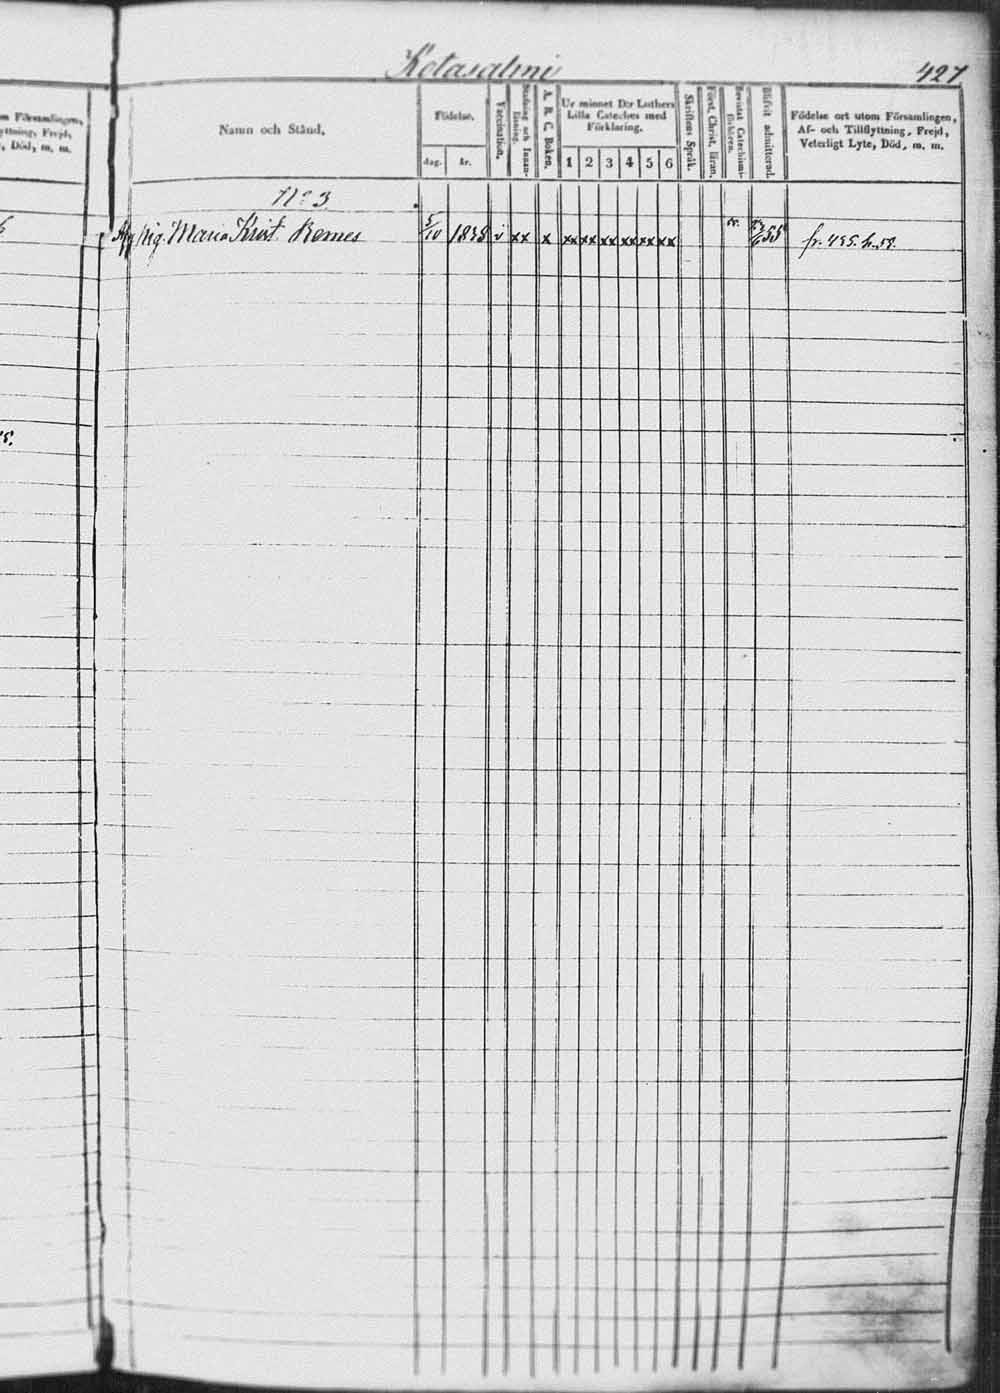 Kotasalmi
427
m Församlingen,
yttning, Frejd,
, Död, m. m.
Namn och Stånd,
Födelse.
dag.
år.
Vaccination.
Stafning och Innan-
läsning.
A. B. C. Boken.
Ur minnet D:r Luthers
Lilla Cateches med
Förklaring.
1 2 3 4 5 6
Skriftens Språk.
Först. Christ. läran.
Bevistat Catechismi-
förhören.
Blifvit admitterad.
Födelse ort utom Församlingen,
Af- och Tillflyttning, Frejd,
Veterligt Lyte, Död, m. m.
No 3
Pig. Maria Krist. Romes 5/10 1838 v xx x xx xx xx xx xx xx 55. fr. 495. h. 58.